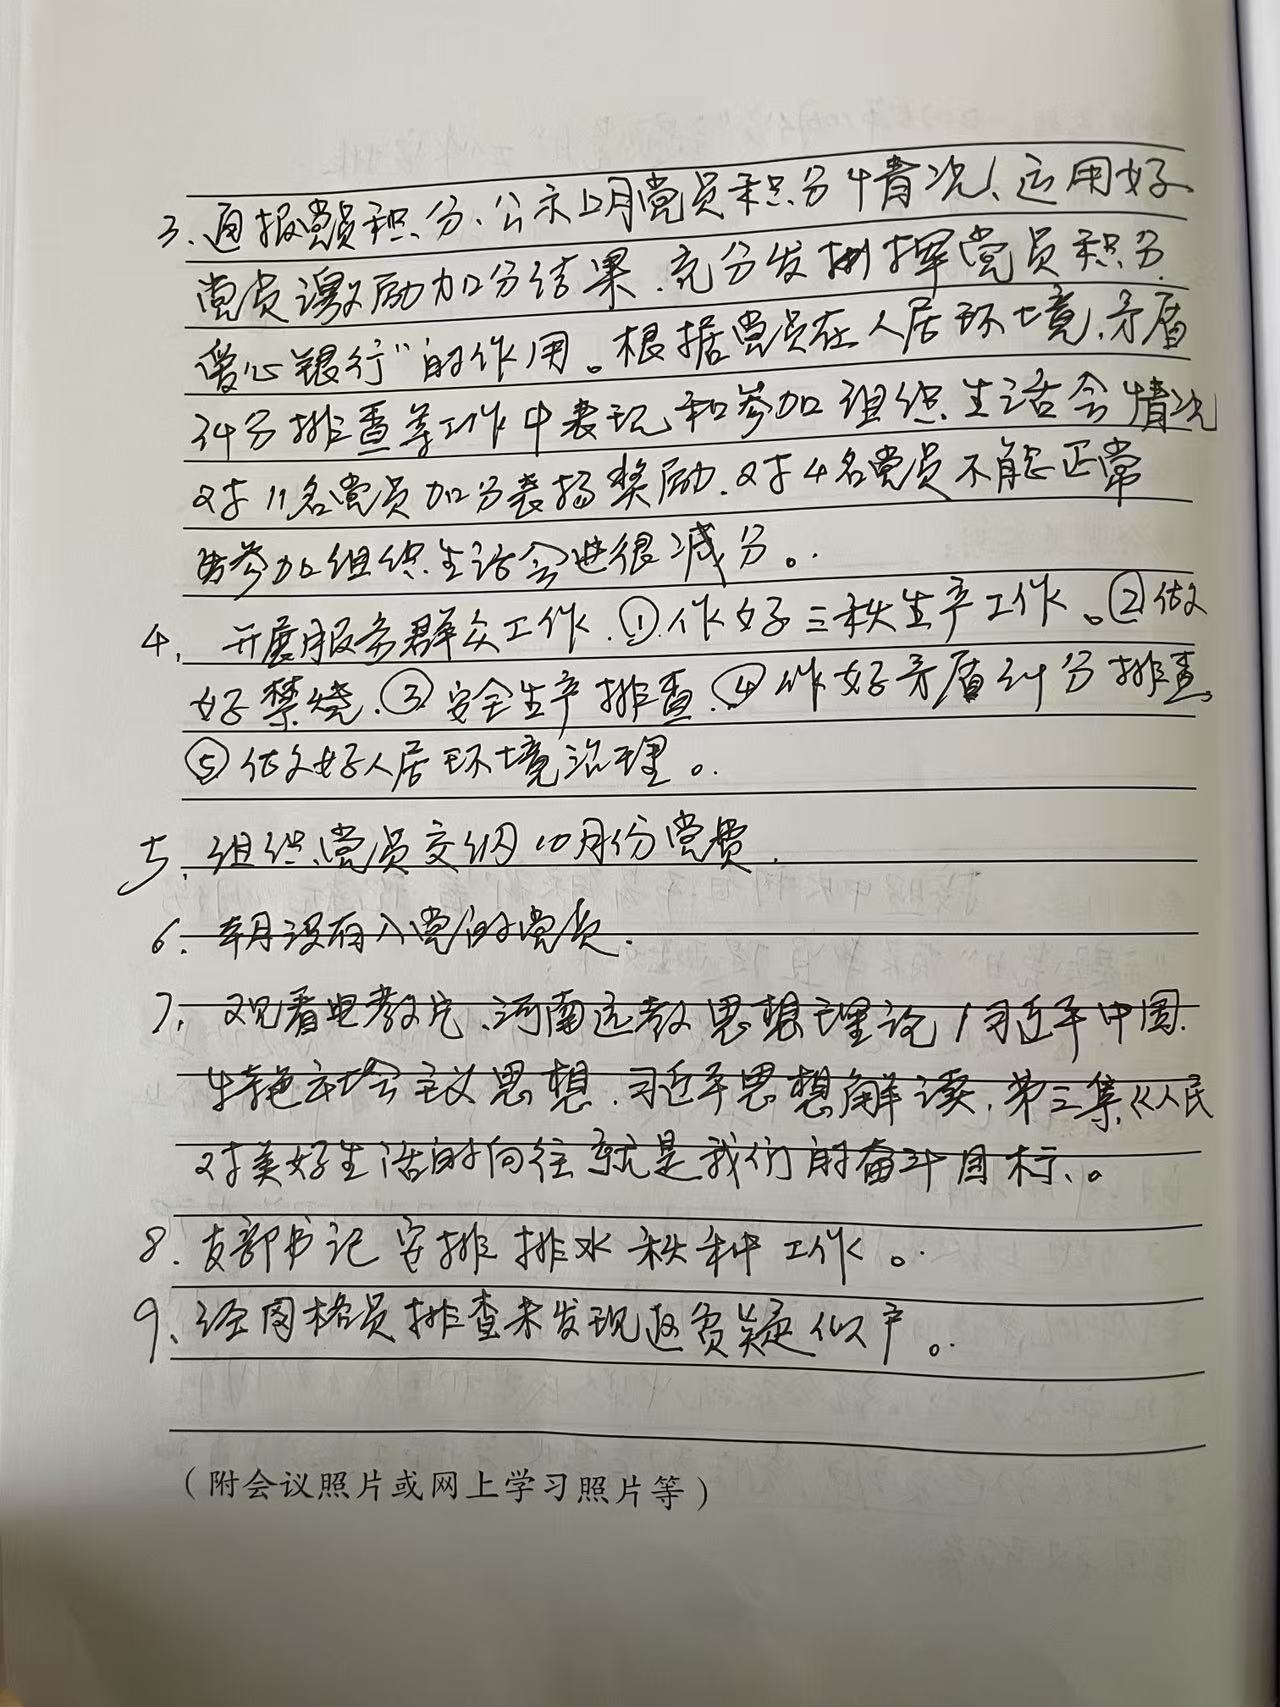 3、通报党员积分、公示上月党员积分情况、运用好
党员激励加分结果、充分发挥党员积分
爱心银行”的作用。根据党员在人居环境、矛盾
纠分排查等工作中表现和参加组织生活会情况
对11名党员加分表扬奖励、对4名党员不能正常
参加组织生活会进很减分。
4、开展服务群众工作、①作好三秋生产工作。②做
好禁烧、③安全生产排查、④作好矛盾纠分排查、
⑤做好人居环境治理。
5、组织党员交纳10月份党费.
6、本月没有入党的党员.
7、观看电教片、河南远教思想理论/习近平中国
特色社会主义思想、习近平思想解读、第三集《人民
对美好生活的向往就是我们的奋斗目标、。
8、支部书记安排排水秋种工作。
9、经网格员排查未发现返贫疑似户。
（附会议照片或网上学习照片等）